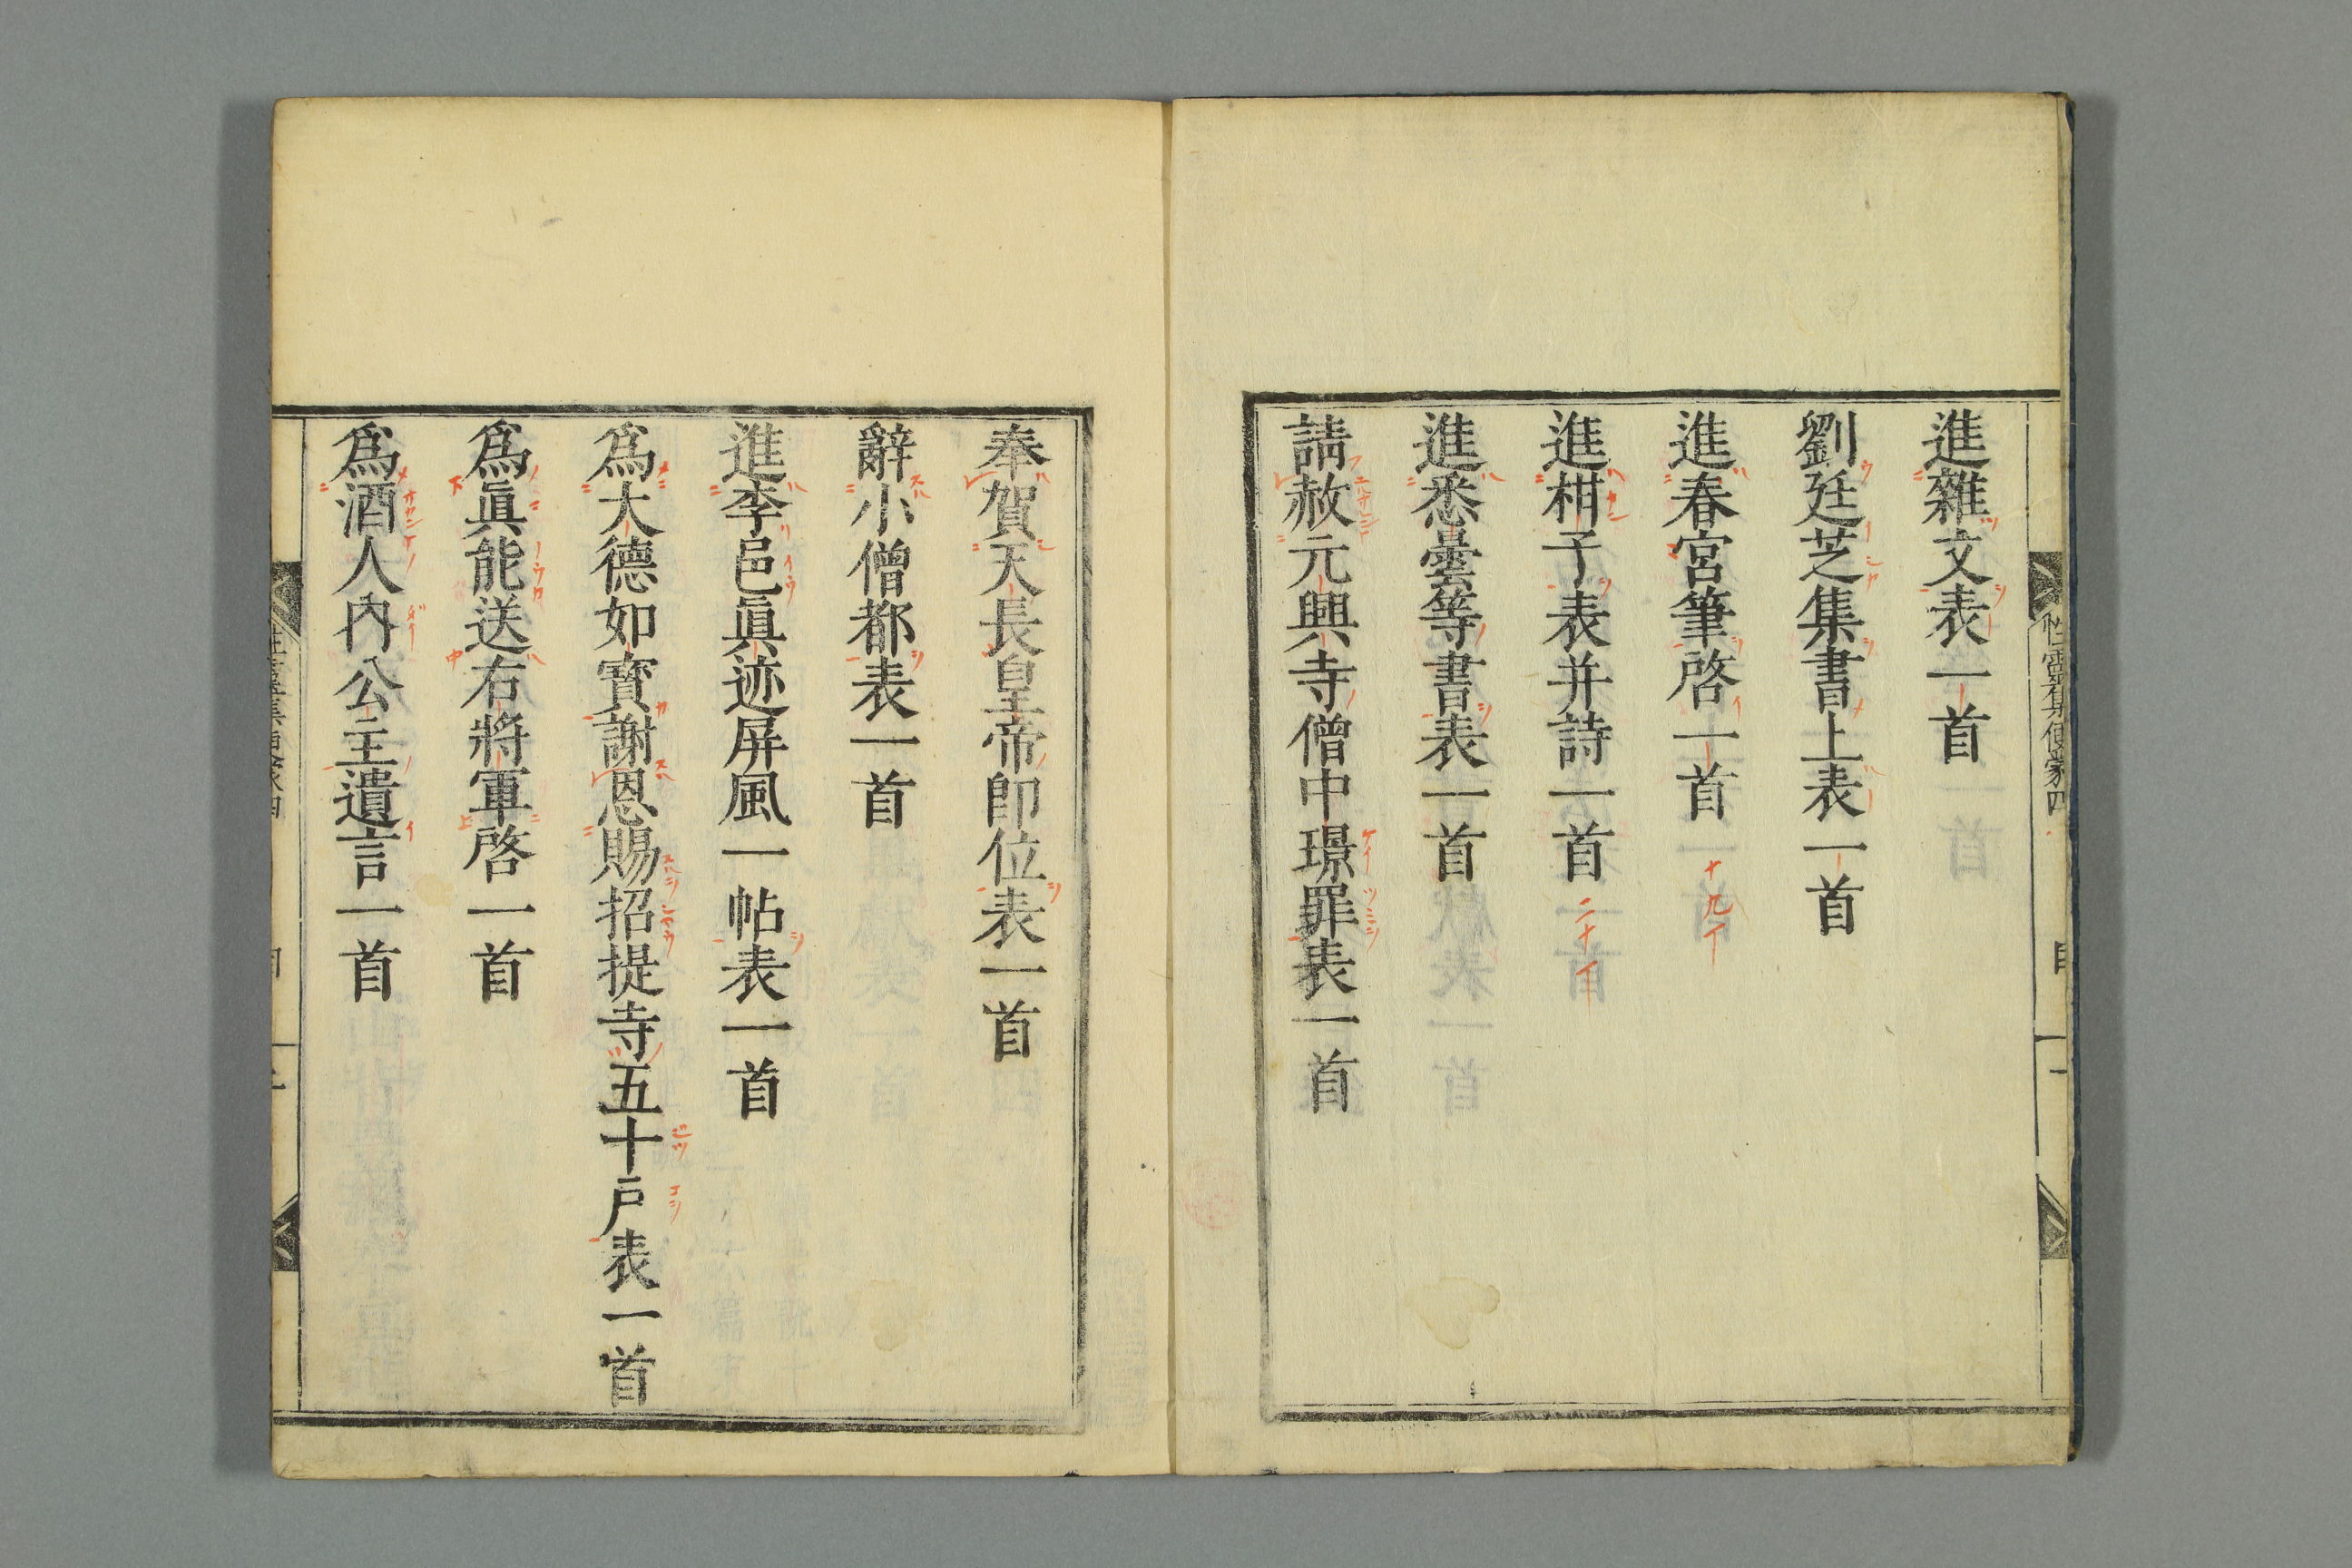 性靈集便蒙四
進雜文表一首
劉廷芝集書上表一首
進春宮筆啓一首
十九イ
進柑子表并詩一首
二十イ
進悉曇等書表一首
請赦元興寺僧中璟罪表一首
奉賀天長皇帝卽位表一首
辭小僧都表一首
進李邕眞迹屏風一帖表一首
爲大德如寳謝恩賜招提寺五十戶表一首
爲眞能送右將軍啓一首
爲酒人內公主遺言一首